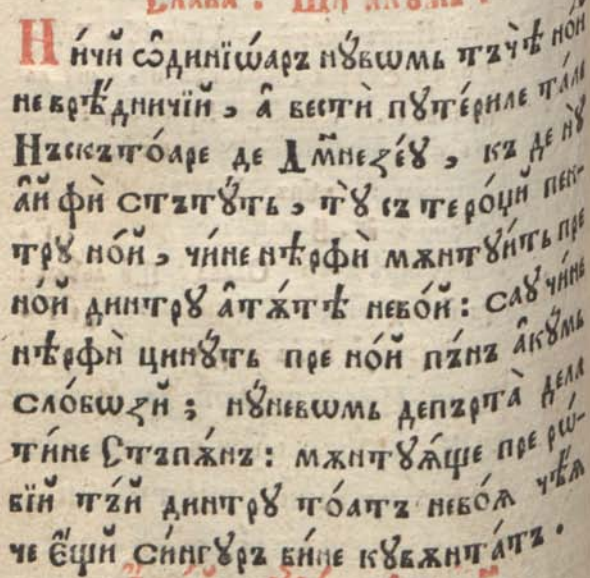 Слава: Ши акумь:
Ни́чй ѡ҆динїѡ́арꙋ нꙋ́вѡмь тъчѣ̀ но́й
невре́дничїй, а҆ вестѝ пꙋте́риле та́ле
Нъскъто́аре де Дм҃незе́ꙋ, къ де нꙋ̀
а҆й фѝ стътꙋ́ть, тꙋ̀ съ те ро́џй пен-
трꙋ но́й, чи́не нѣр фѝ мѫнтꙋи́ть пре
но́й динтрꙋ а҆тѫ́тѣ нево́й: саꙋ чи́не
нѣр фѝ цинꙋ́ть пре но́й пѫ́нъ а҆кꙋ́мь
сло́бѡзй; нꙋ́не вѡмь депъртà дела
ти́не Стъпѫ́нъ: мѫнтꙋꙗ́ще пре рѡ́-
бїй тъ́й динтрꙋ то́атъ нево́ѧ чѣ́ѧ
че є҆́щй си́нгꙋръ би́не кꙋвѫнта́тъ.